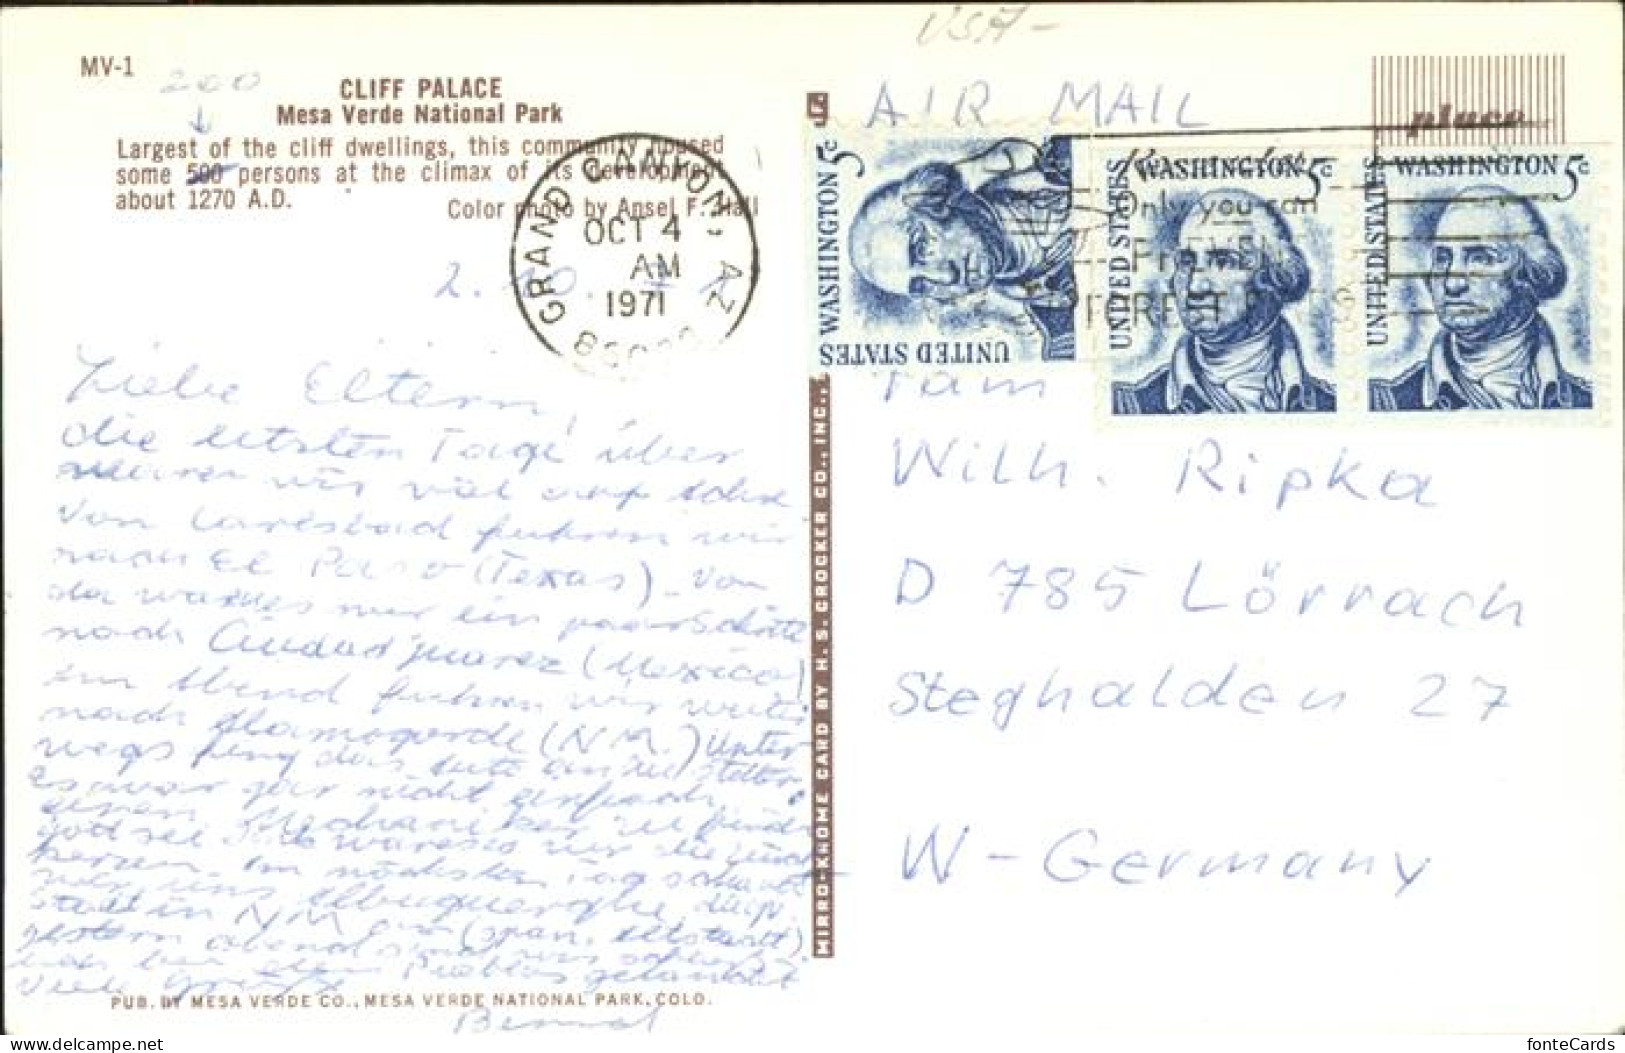 USA-
MV-1
200
↓
CLIFF PALACE
Mesa Verde National Park
Largest of the cliff dwellings, this community housed
some 500 persons at the climax of its development
about 1270 A.D.
Color photo by Ansel F. Hall
GRAND CANYON, AZ
OCT 4
AM
1971
86023
2. 10. 71
Liebe Eltern,
die letzten Tage über
waren wir viel auf Achse
Von Carlsbad fuhren wir
nach El Paso (Texas). Von
da waren es nur ein paar Schritte
nach Ciudad Juarez (Mexico)
Am Abend fuhren wir weiter
nach Alamogordo (N.M.) Unter
wegs fing das
es war gar nicht einfach
einen Mechaniker zu finden
gott sei
Im nächsten Tag
wir uns Albuquerque
in NM an (span. Altstadt).
gestern abend sind wir
Viele Grüße
PUB. BY MESA VERDE CO., MESA VERDE NATIONAL PARK, COLO.
MIRRO-KROME CARD BY H. S. CROCKER CO., INC.,
AIR MAIL
place
WASHINGTON 5c
UNITED STATES
WASHINGTON 5c
UNITED STATES
WASHINGTON 5c
UNITED STATES
Only you can
PREVENT
FOREST FIRES
Fam
Wilh. Ripka
D 785 Lörrach
Steghalden 27
W-Germany
www.delcampe.net
fonteCards